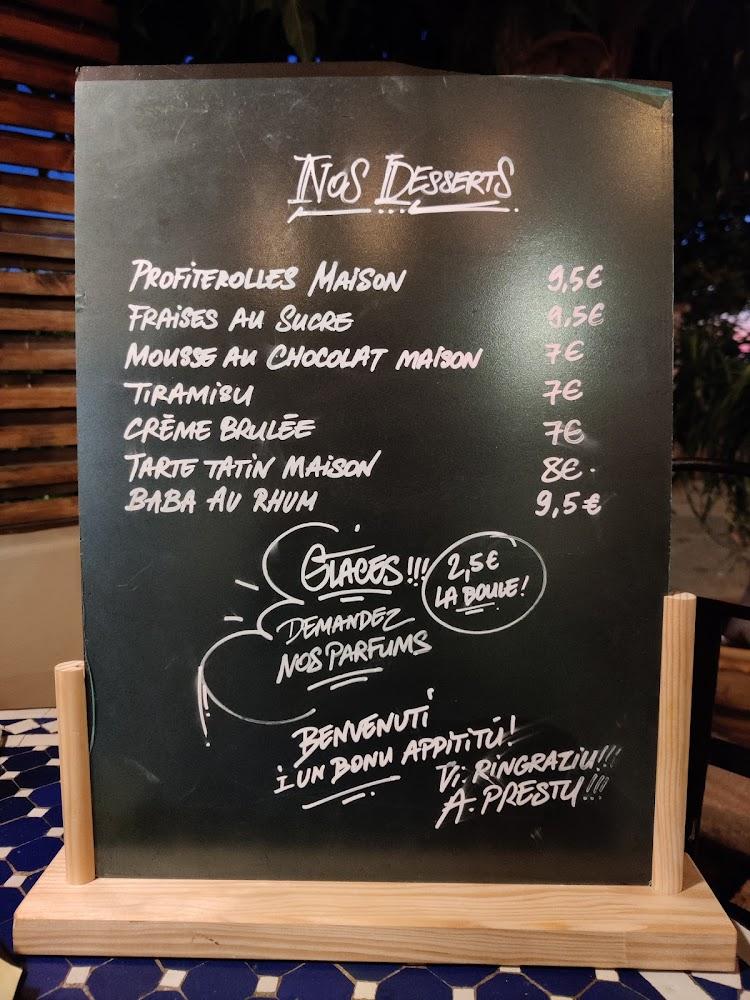 NOS DESSERTS
PROFITEROLLES MAISON 9,5€
FRAISES AU SUCRE 9,5€
MOUSSE AU CHOCOLAT MAISON 7€
TIRAMISU 7€
CRÈME BRULÉE 7€
TARTE TATIN MAISON 8€.
BABA AU RHUM 9,5€
GLACES!!! 2,5€
LA BOULE!
DEMANDEZ
NOS PARFUMS
BENVENUTI
I UN BONU APPITITÙ!
VI. RINGRAZIU!!!
A. PRESTU!!!